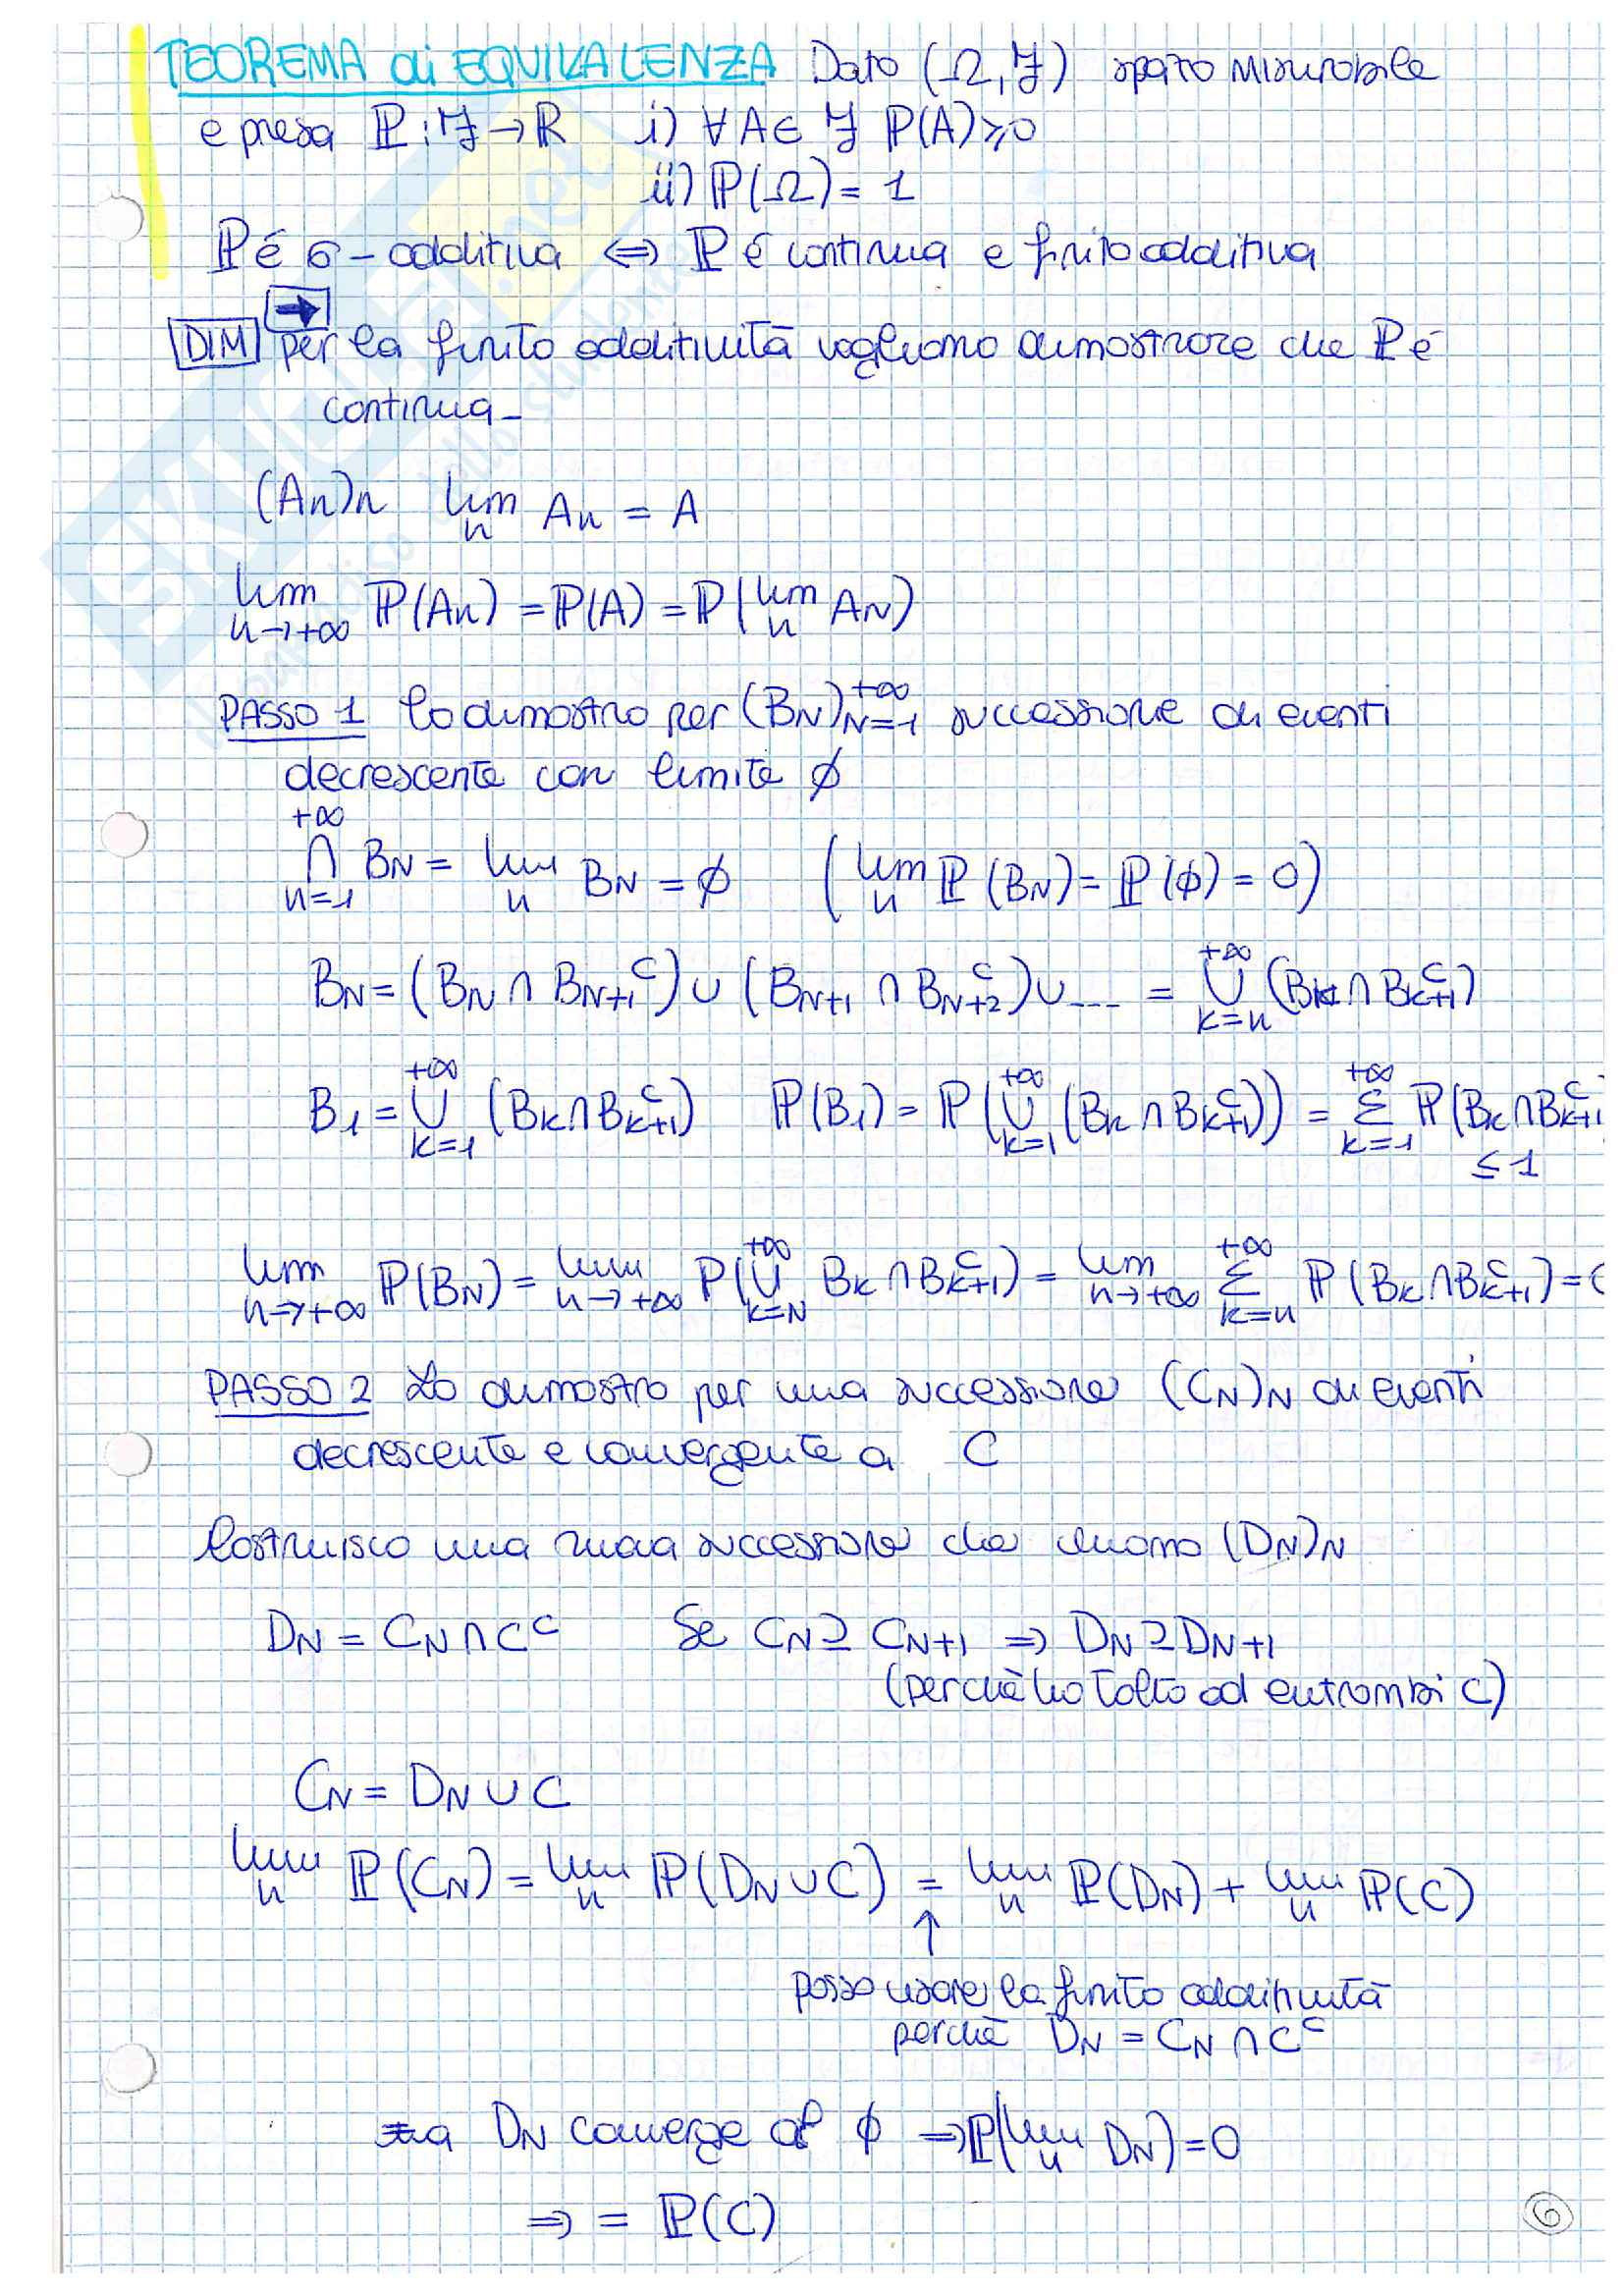 TEOREMA di EQUIVALENZA Dato (Ω, F) spazio misurabile
e presa ℙ: F → ℝ i) ∀A ∈ F ℙ(A) ≥ 0
ii) ℙ(Ω) = 1
ℙ é σ-additiva ⇔ ℙ é continua e finito additiva
→
DIM per la finito additività vogliamo dimostrare che ℙ é
continua_
(An)n lim n An = A
lim n→+∞ ℙ(An) = ℙ(A) = ℙ(lim n AN)
PASSO 1 lo dimostro per (BN)N=1+∞ successione di eventi
decrescente con limite ∅
+∞ ∩ n=1 BN = lim n BN = ∅ (lim n ℙ(BN) = ℙ(∅) = 0)
BN = (BN ∩ BN+1^C) ∪ (BN+1 ∩ BN+2^C) ∪ --- = +∞ ∪ k=n (Bk ∩ Bk+1^C)
B1 = +∞ ∪ k=1 (Bk ∩ Bk+1^C) ℙ(B1) = ℙ(+∞ ∪ k=1 (Bk ∩ Bk+1^C)) = +∞ Σ k=1 ℙ(Bk ∩ Bk+1^C
≤ 1
lim n→+∞ ℙ(BN) = lim n→+∞ ℙ(+∞ ∪ k=N Bk ∩ Bk+1^C) = lim n→+∞ +∞ Σ k=n ℙ(Bk ∩ Bk+1^C) = 0
PASSO 2 Lo dimostro per una successione (CN)N di eventi
decrescente e convergente a C
Costruisco una nuova successione che chiamo (DN)N
DN = CN ∩ C^C Se CN ⊇ CN+1 ⇒ DN ⊇ DN+1
(perchè ho tolto ad entrambi C)
CN = DN ∪ C
lim n ℙ(CN) = lim n ℙ(DN ∪ C) = lim n ℙ(DN) + lim n ℙ(C)
↑
posso usare la finito additività
perchè DN = CN ∩ C^C
ma DN converge al ∅ ⇒ ℙ(lim n DN) = 0
⇒ = ℙ(C)
6
SKUOLA.net
il paradiso dello studente